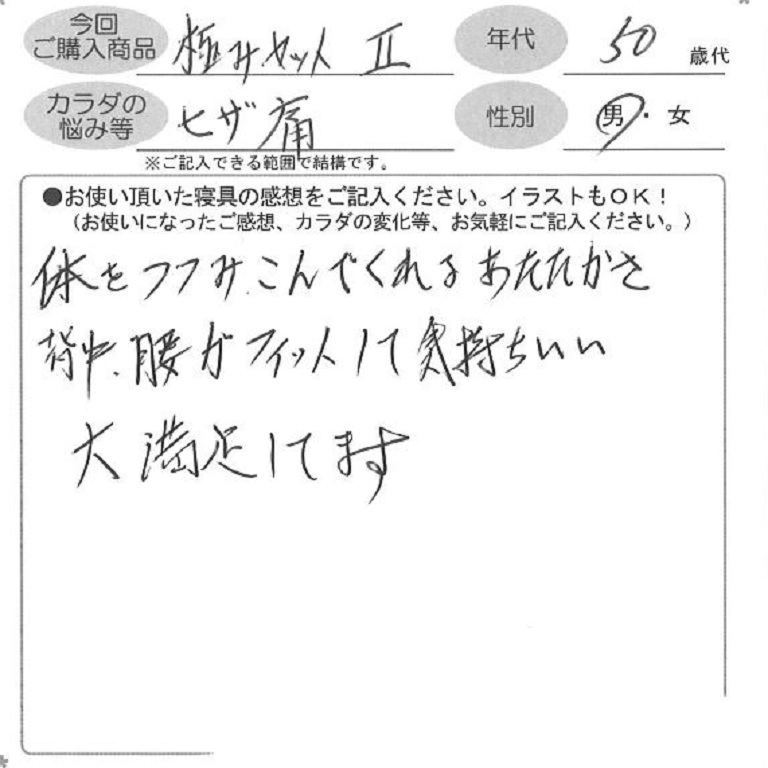 今回ご購入商品 極みセット Ⅱ 年代 50 歳代
カラダの悩み等 ヒザ痛 性別 男・女
※ご記入できる範囲で結構です。
●お使い頂いた寝具の感想をご記入ください。イラストもOK！
（お使いになったご感想、カラダの変化等、お気軽にご記入ください。）
体をツツみこんでくれるあたたかさ
背中、腰がフィットして気持ちいい
大満足してます